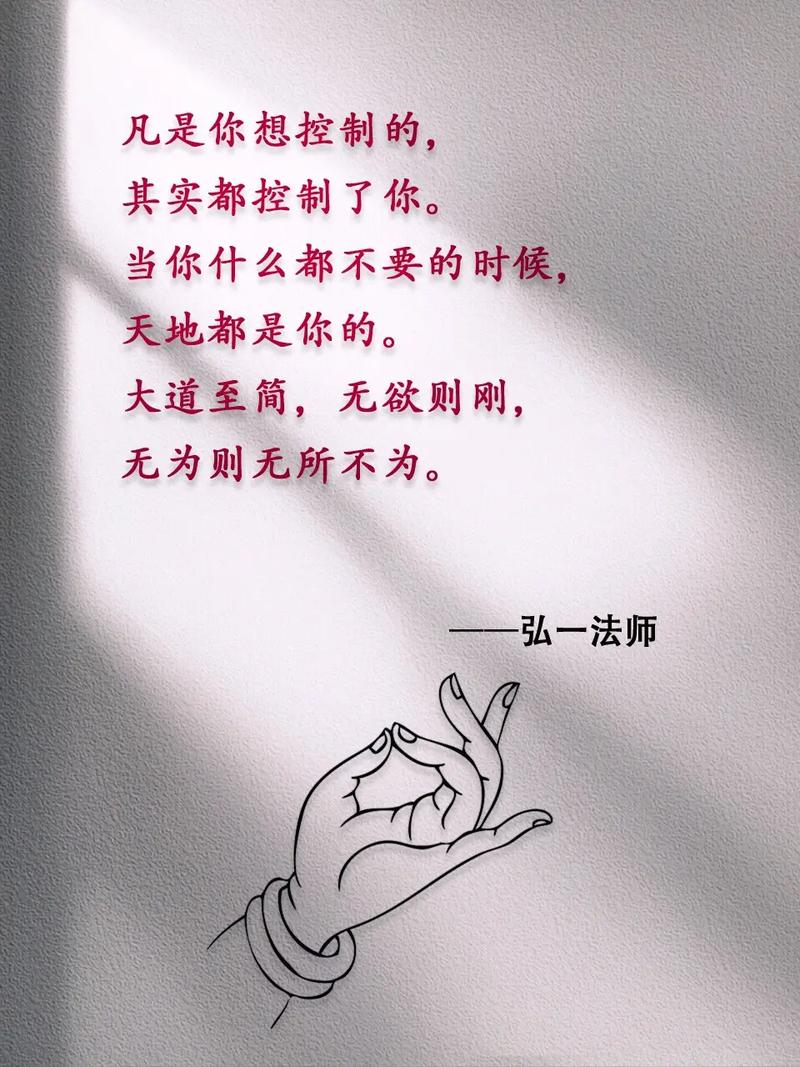 凡是你想控制的，
其实都控制了你。
当你什么都不要的时候，
天地都是你的。
大道至简，无欲则刚，
无为则无所不为。
——弘一法师